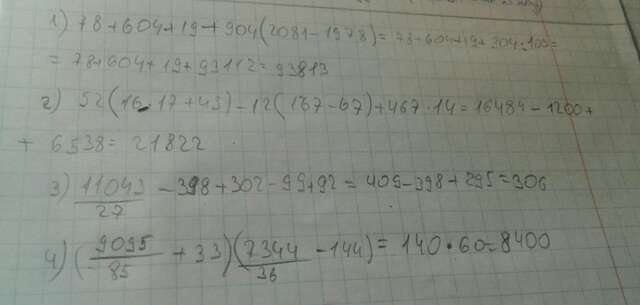 1) 78+604+19+904(2081-1978)=78+604+19+904·103=
=78+604+19+93112=93813
2) 52(16·17+45)-12(167-67)+467·14=16484-1200+
+ 6538=21822
3) 11043/27 -398+302-99+92=409-398+295=306
4) (9095/85 +33)(7344/36 -144)=140·60=8400